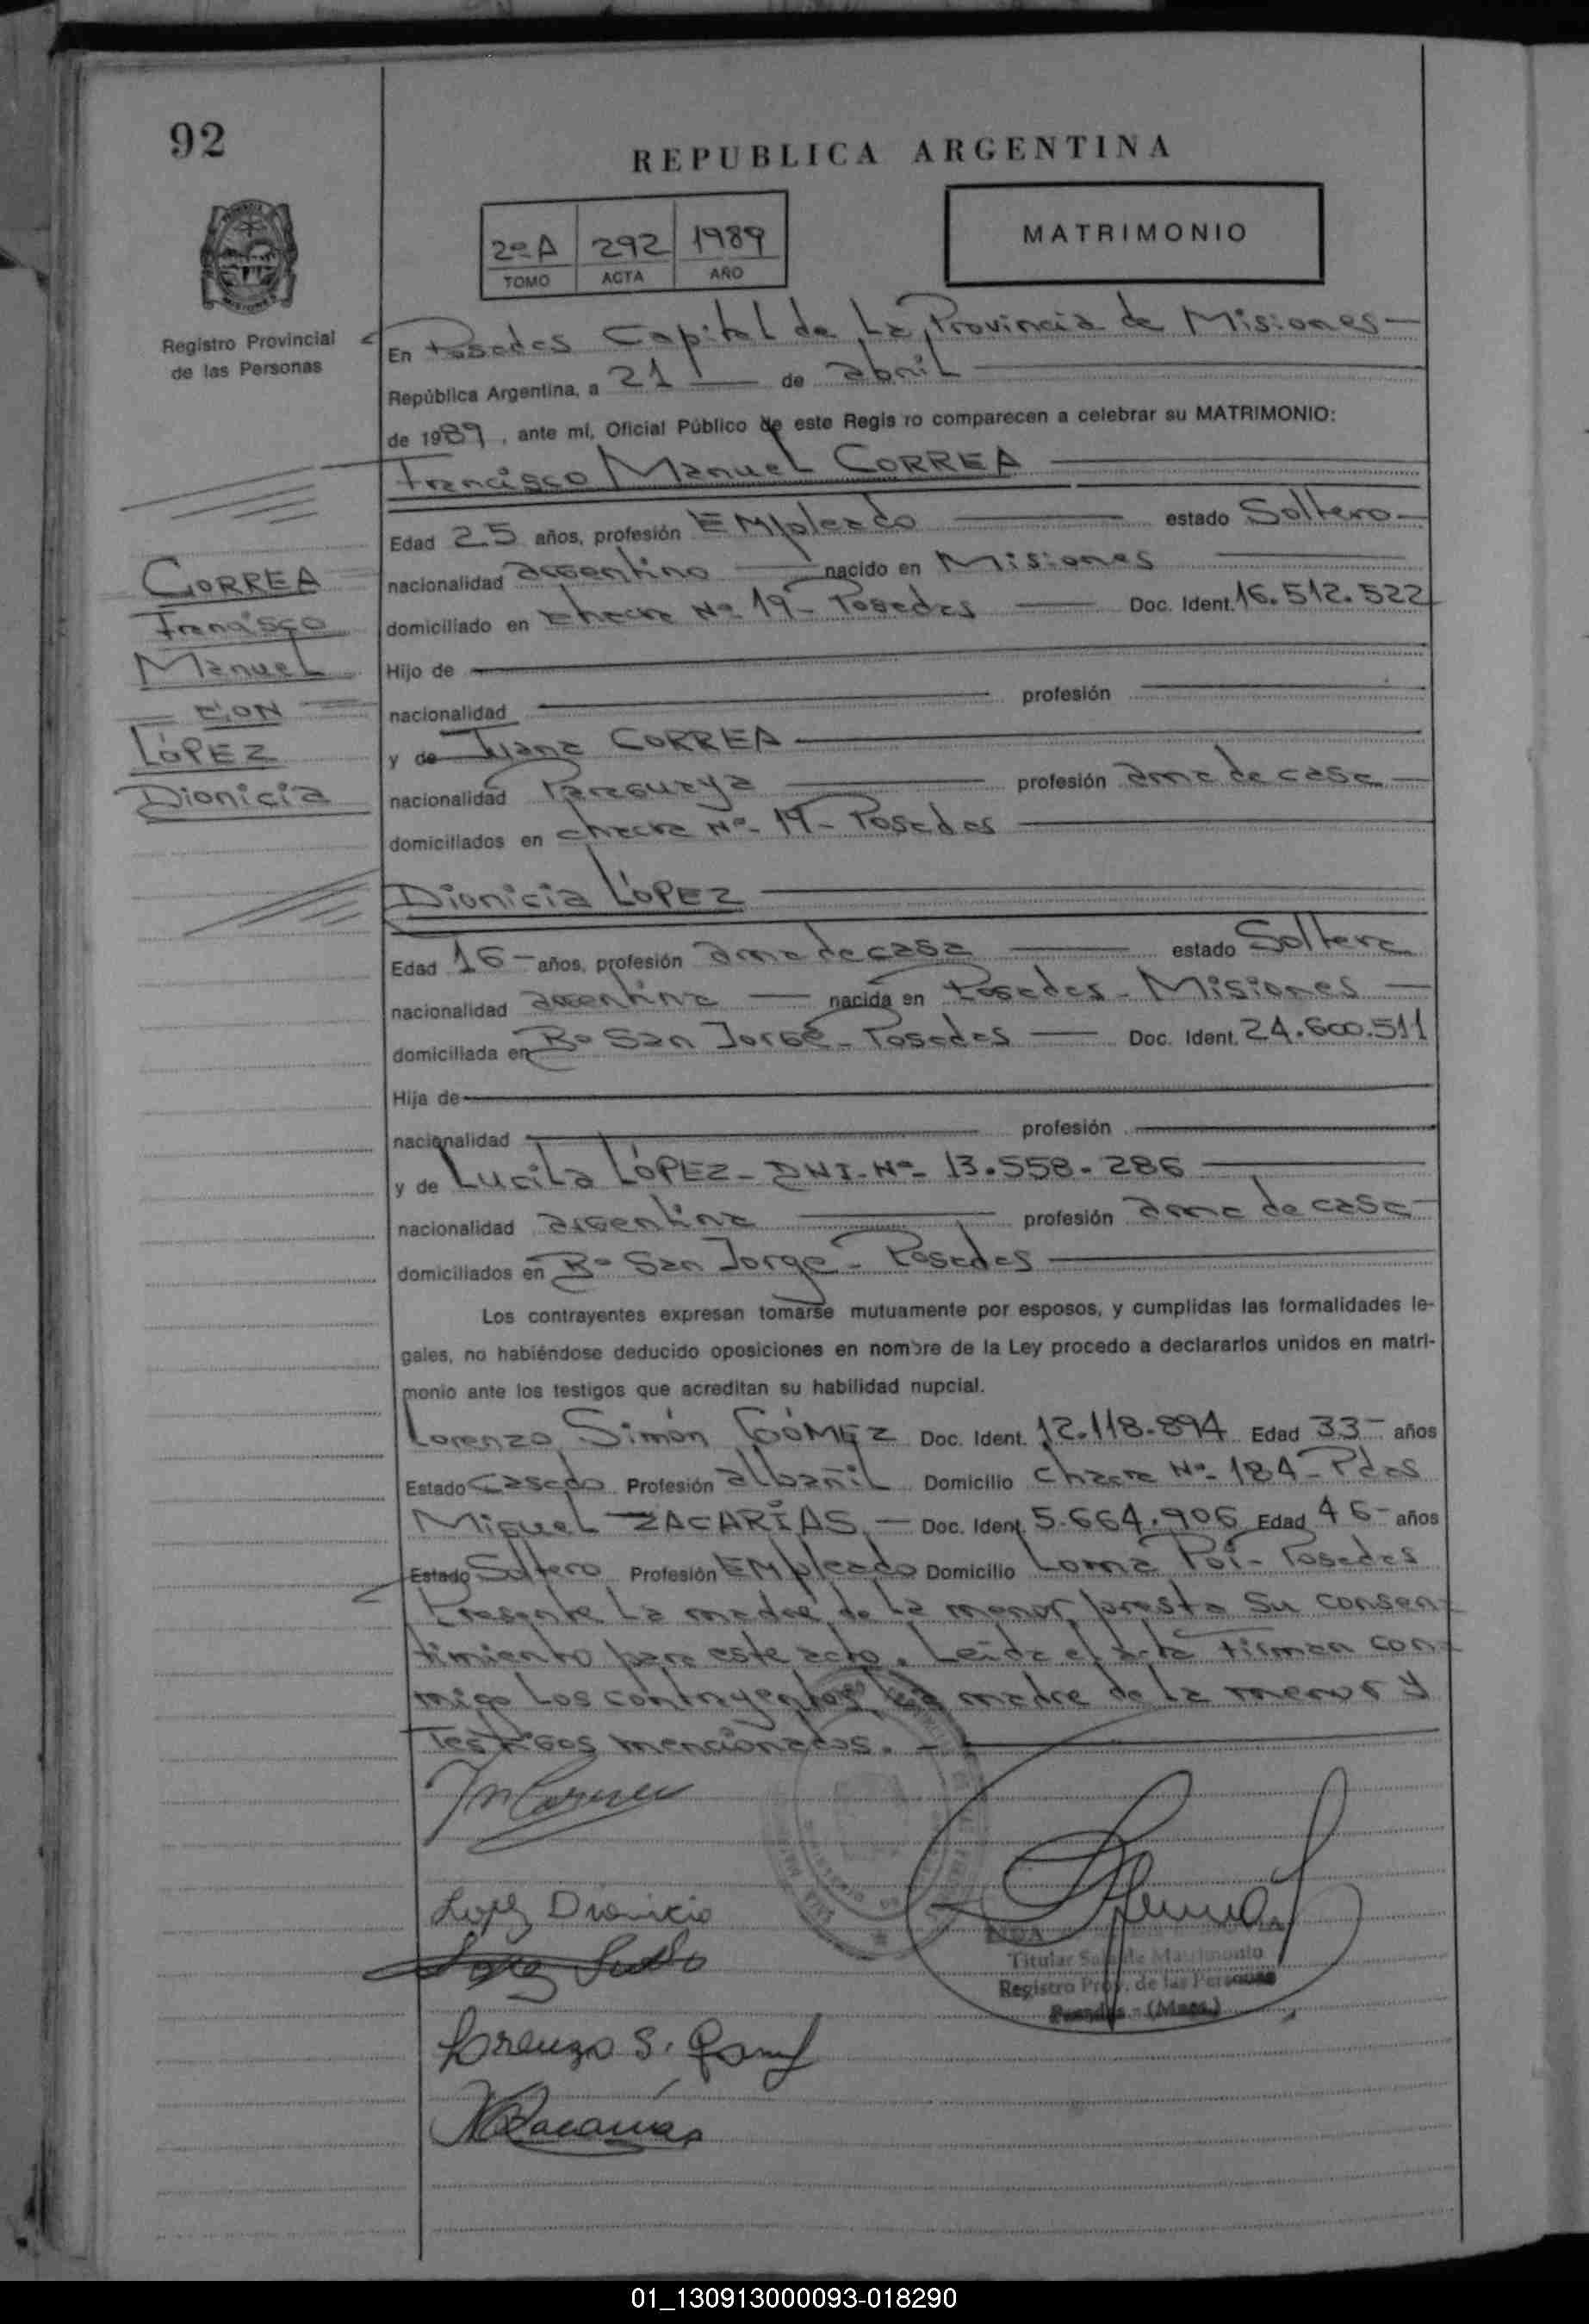 92
REPUBLICA ARGENTINA
2º A 292 1989
TOMO ACTA AÑO
MATRIMONIO
Registro Provincial
de las Personas
En Posadas Capital de La Provincia de Misiones
República Argentina, a 21 de abril
de 1989, ante mí, Oficial Público de este Regis ro comparecen a celebrar su MATRIMONIO:
Francisco Manuel CORREA
Edad 25 años, profesión EMpleado estado Soltero
nacionalidad argentino nacido en Misiones
domiciliado en chacra Nº 19 - Posadas Doc. Ident. 16.512.522
Hijo de
nacionalidad profesión
y de Juana CORREA
nacionalidad Paraguaya profesión ama de casa
domiciliados en chacra Nº 19 - Posadas
CORREA
Francisco
Manuel
CON
LÓPEZ
Dionicia
Dionicia LÓPEZ
Edad 16 años, profesión ama de casa estado Soltera
nacionalidad argentina nacida en Posadas - Misiones
domiciliada en Bº San Jorge - Posadas Doc. Ident. 24.600.511
Hija de
nacionalidad profesión
y de Lucila LÓPEZ - DNI - Nº 13.558.286
nacionalidad argentina profesión ama de casa
domiciliados en Bº San Jorge - Posadas
Los contrayentes expresan tomarse mutuamente por esposos, y cumplidas las formalidades le-
gales, no habiéndose deducido oposiciones en nombre de la Ley procedo a declararlos unidos en matri-
monio ante los testigos que acreditan su habilidad nupcial.
Lorenzo Simón GÓMEZ Doc. Ident. 12.118.894 Edad 33 años
Estado Casado Profesión albañil Domicilio chacra Nº 184 - Pdas
Miguel ZACARÍAS - Doc. Ident. 5.664.906 Edad 46 años
Estado Soltero Profesión EMpleado Domicilio Loma Poi - Posadas
Presente La madre de La menor presta Su consen-
timiento para este acto. Leída el acta firman con-
migo Los contrayentes, La madre de La menor y
Testigos mencionados. -
Lopez Dionicia
Lorenzo S. Gomez
Zacarías
Titular Sala de Matrimonio
Registro Prov. de las Personas
Posadas - (Mnes.)
01_130913000093-018290